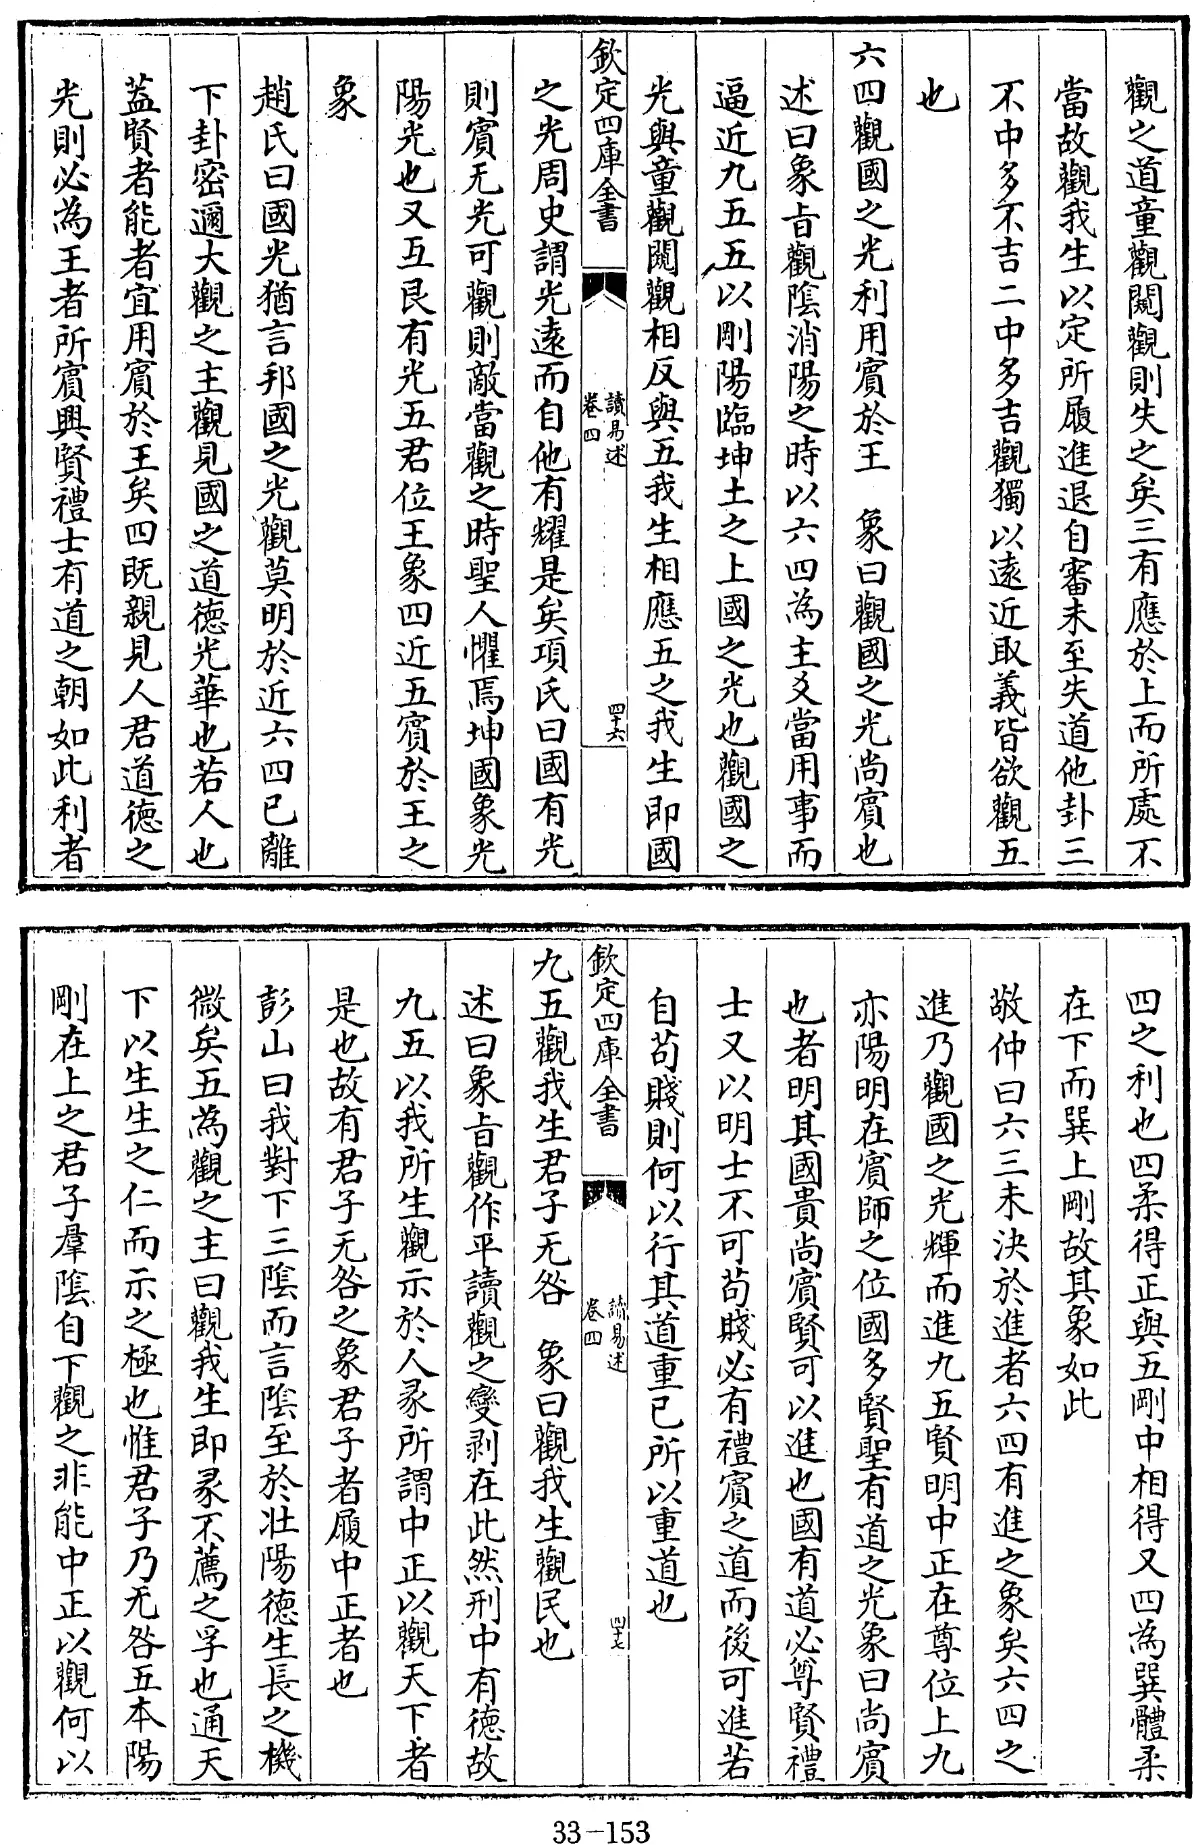 觀之道童觀闚觀則失之矣三有應於上而所處不
當故觀我生以定所履進退自審未至失道他卦三
不中多不吉二中多吉觀獨以遠近取義皆欲觀五
也
六四觀國之光利用賓於王 象曰觀國之光尚賓也
述曰象㫖觀陰消陽之時以六四為主爻當用事而
逼近九五五以剛陽臨坤土之上國之光也觀國之
光與童觀闚觀相反與五我生相應五之我生即國
欽定四庫全書
讀易述
卷四
四十六
之光周史謂光逺而自他有耀是矣項氏曰國有光
則賓无光可觀則敵當觀之時聖人懼焉坤國象光
陽光也又互艮有光五君位王象四近五賓於王之
象
趙氏曰國光猶言邦國之光觀莫明於近六四已離
下卦密邇大觀之主觀見國之道徳光華也若人也
葢賢者能者宜用賓於王矣四既親見人君道徳之
光則必為王者所賓興賢禮士有道之朝如此利者
四之利也四柔得正與五剛中相得又四為巽體柔
在下而巽上剛故其象如此
敬仲曰六三未決於進者六四有進之象矣六四之
進乃觀國之光輝而進九五賢明中正在尊位上九
亦陽明在賓師之位國多賢聖有道之光象曰尚賓
也者明其國貴尚賓賢可以進也國有道必尊賢禮
士又以明士不可茍賤必有禮賓之道而後可進若
自茍賤則何以行其道重已所以重道也
欽定四庫全書
讀易述
卷四
四十七
九五觀我生君子无咎 象曰觀我生觀民也
述曰象㫖觀作平讀觀之變剥在此然刑中有徳故
九五以我所生觀示於人彖所謂中正以觀天下者
是也故有君子无咎之象君子者履中正者也
彭山曰我對下三陰而言陰至於壯陽德生長之機
微矣五為觀之主曰觀我生即彖不薦之孚也通天
下以生生之仁而示之極也惟君子乃无咎五本陽
剛在上之君子羣陰自下觀之非能中正以觀何以
33-153